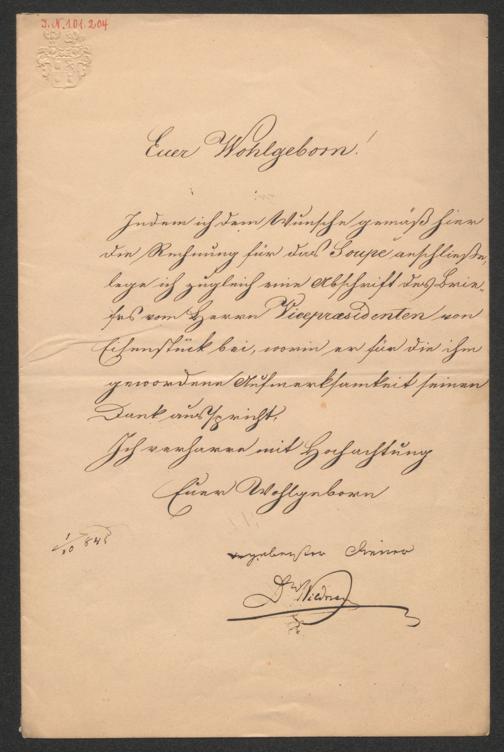 I.N. 101.204
Euer Wohlgeborn!
Indem ich dem Wunsche gemäß hier
die Rechnung für das Soupé anschließe,
lege ich zugleich eine Abschrift des Brie-
fes vom Herrn Vicepræsidenten von
Eichenstück bei, worin er für die ihm
gewordene Aufmerksamkeit seinen
Dank ausspricht.
Ich verharre mit Hochachtung
Euer Wohlgeborn
ergebenster Diener
1/10 845
Dr Wildner